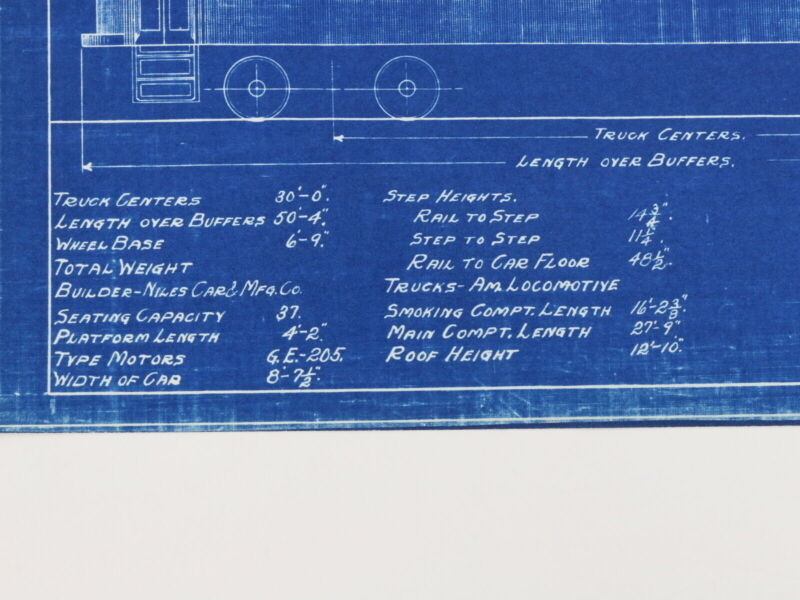 TRUCK CENTERS.
LENGTH OVER BUFFERS.
TRUCK CENTERS 30'-0".
LENGTH OVER BUFFERS 50'-4".
WHEEL BASE 6'-9".
TOTAL WEIGHT
BUILDER-NILES CAR & MFG. CO.
SEATING CAPACITY 37.
PLATFORM LENGTH 4'-2".
TYPE MOTORS G.E.-205.
WIDTH OF CAR 8'-7 1/2".
STEP HEIGHTS.
RAIL TO STEP 14 3/4".
STEP TO STEP 11 1/4".
RAIL TO CAR FLOOR 48 1/2".
TRUCKS-AM. LOCOMOTIVE
SMOKING COMPT. LENGTH 16'-2 3/8".
MAIN COMPT. LENGTH 27'-9".
ROOF HEIGHT 12'-10".